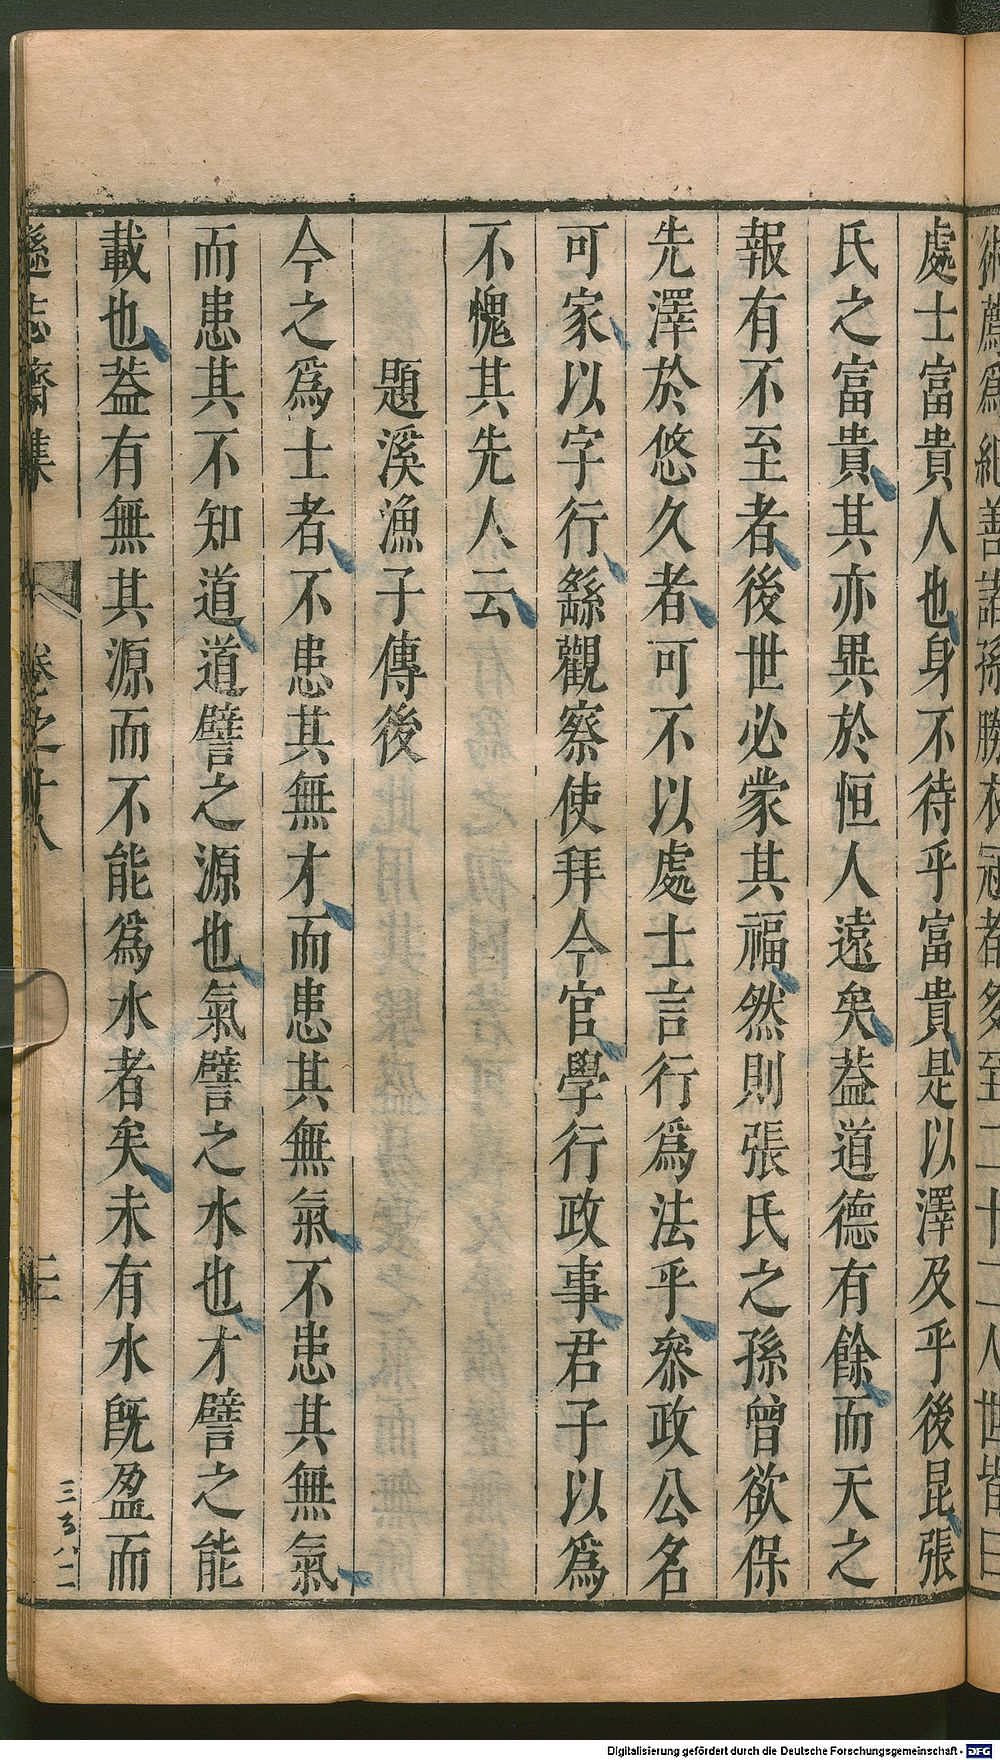 術薦爲紀善諸孫勝衣冠者多至二十二人世皆曰
處士富貴人也身不待乎富貴是以澤及乎後昆張
氏之富貴其亦異於恒人遠矣葢道德有餘而天之
報有不至者後世必蒙其福然則張氏之孫曾欲保
先澤於悠久者可不以處士言行爲法乎叅政公名
可家以字行繇觀察使拜今官學行政事君子以爲
不愧其先人云
題溪漁子傳後
今之爲士者不患其無才而患其無氣不患其無氣
而患其不知道道譬之源也氣譬之水也才譬之能
載也葢有無其源而不能爲水者矣未有水旣盈而
遜志齋集 卷之十八 二
Digitalisierung gefördert durch die Deutsche Forschungsgemeinschaft - DFG